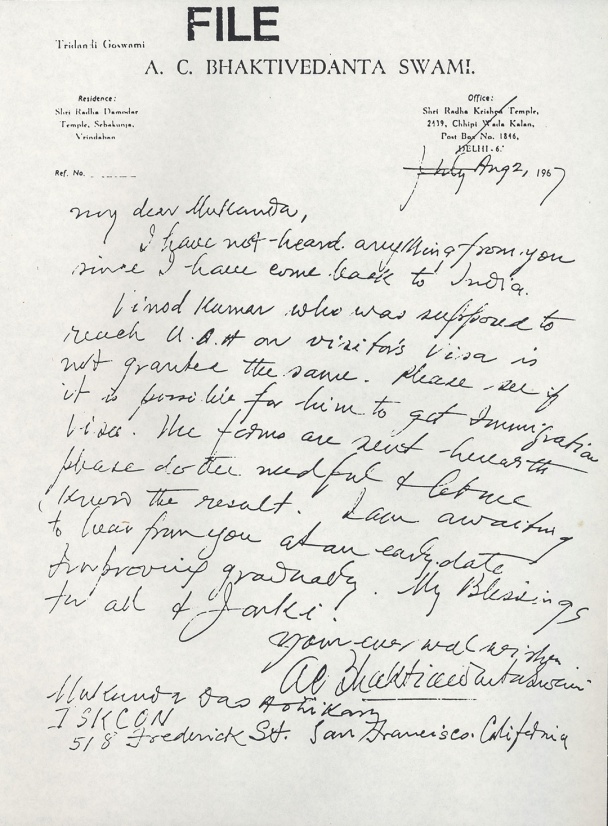 FILE
Tridandi Goswami
A. C. BHAKTIVEDANTA SWAMI.
Residence:
Shri Radha Damodar
Temple, Sebakunja,
Vrindaban
Office:
Shri Radha Krishna Temple,
2439, Chhipi Wada Kalan,
Post Box No. 1846,
DELHI-6.
Ref. No.
July Aug 2, 1967
my dear Mukanda,
I have not heard anything from you
since I have come back to India.
Vinod Kumar who was supposed to
reach U.S.A on visitor's Visa is
not granted the same. Please see if
it is possible for him to get Immigration
Visa. The forms are sent herewith
please do the needful & let me
know the result. I am awaiting
to hear from you at an early date
Improving gradually. My Blessings
for all & Janki.
Your ever well wisher
AC Bhaktivedanta Swami
Mukunda Das Adhikary
ISKCON
518 Frederick St. San Francisco. California